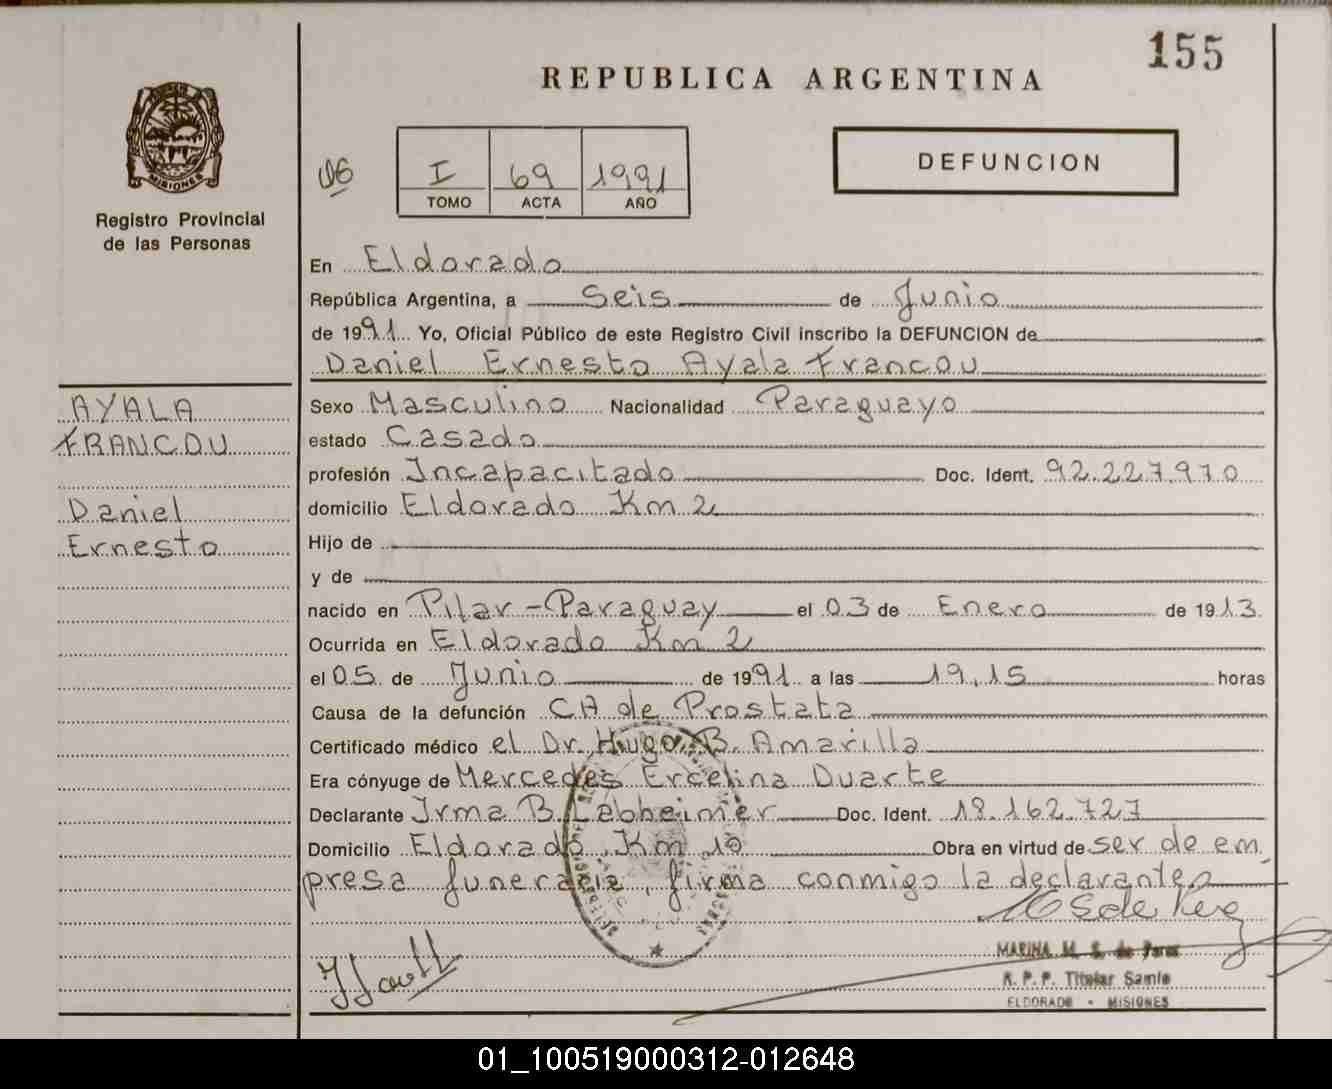 155
REPUBLICA ARGENTINA
MISIONES
Registro Provincial
de las Personas
I 69 1991
TOMO ACTA AÑO
DEFUNCION
En Eldorado
República Argentina, a Seis de Junio
de 1991. Yo, Oficial Público de este Registro Civil inscribo la DEFUNCION de
Daniel Ernesto Ayala Francou
AYALA
FRANCOU
Daniel
Ernesto
Sexo Masculino Nacionalidad Paraguayo
estado Casado
profesión Incapacitado Doc. Ident. 92.227.970
domicilio Eldorado Km 2
Hijo de
y de
nacido en Pilar - Paraguay el 03 de Enero de 1913
Ocurrida en Eldorado Km 2
el 05 de Junio de 1991 a las 19,15 horas
Causa de la defunción CA de Prostata
Certificado médico el Dr. Hugo B. Amarilla
Era cónyuge de Mercedes Ercelina Duarte
Declarante Irma B. Doc. Ident. 18.162.727
Domicilio Eldorado, Km 10 Obra en virtud de ser de em
presa funeraria, firma conmigo la declarante
MARINA M. S. de Perez
R. P. P. Titular
ELDORADO - MISIONES
01_100519000312-012648